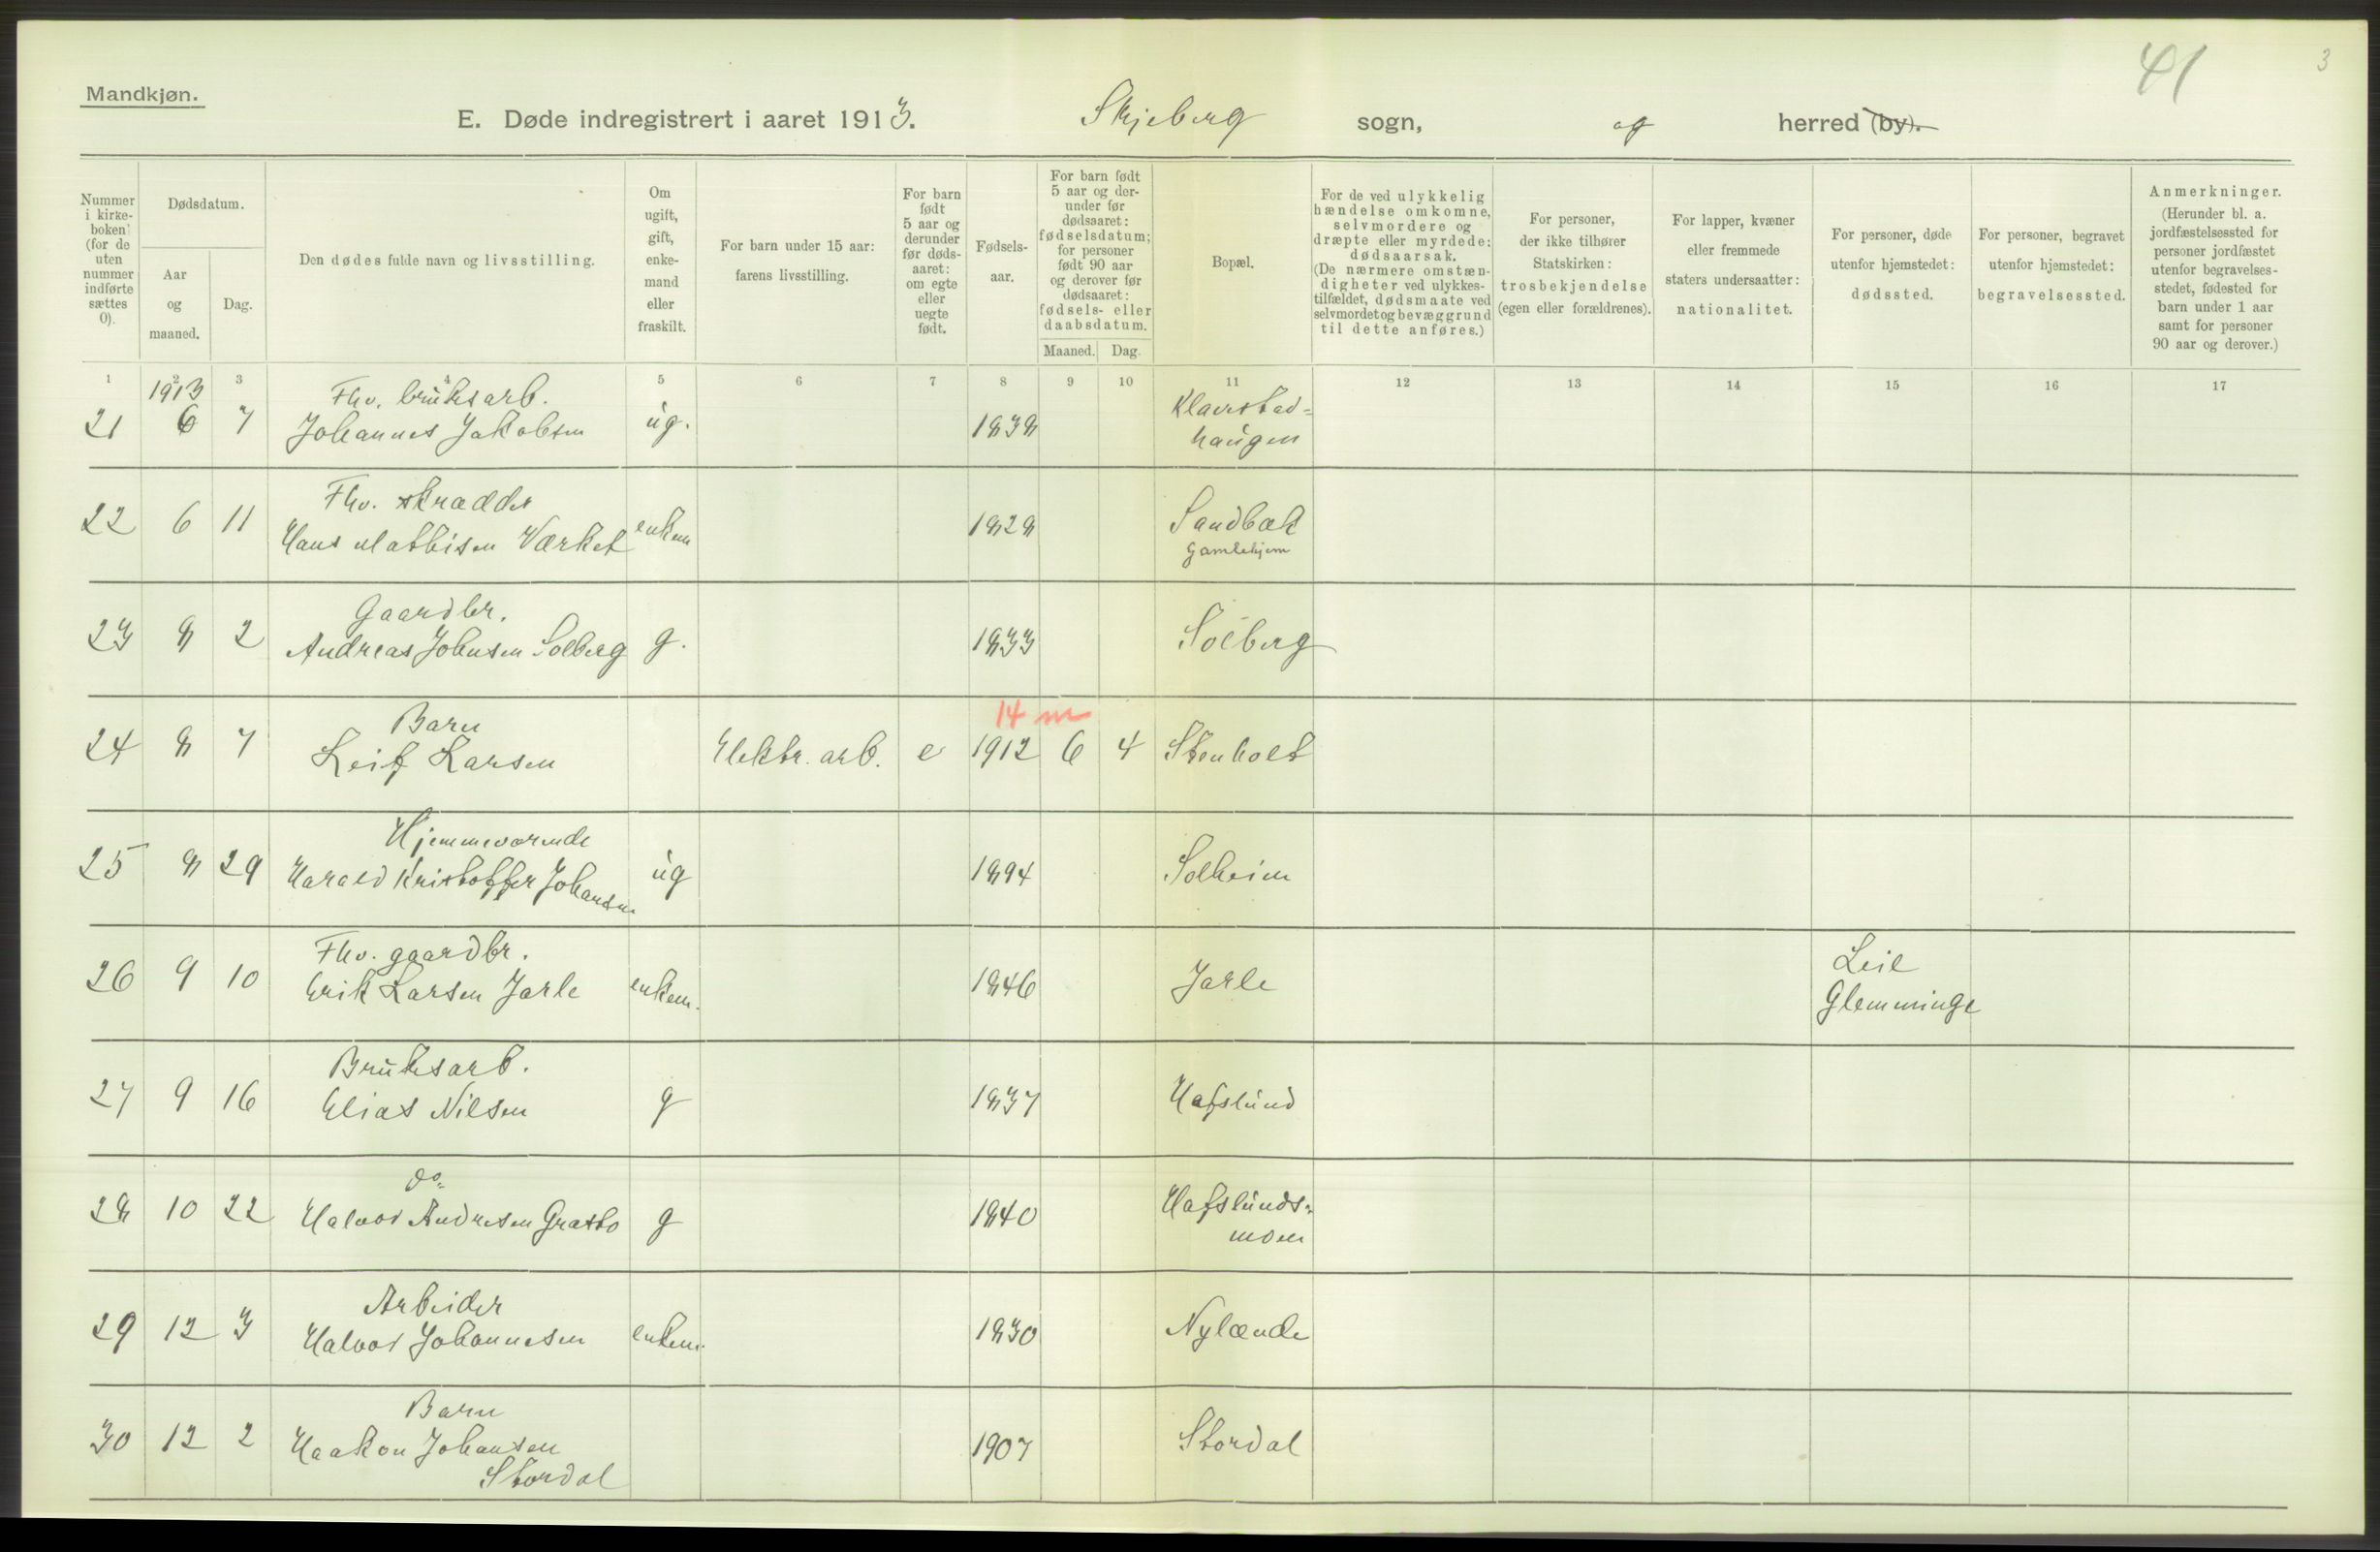 41
3
Mandkjøn.
E. Døde indregistrert i aaret 1913. Skjeberg sogn, og herred (by).
Nummer i kirkeboken (for de uten nummer indførte sættes 0).
Dødsdatum.
Aar og maaned.
Dag.
Den dødes fulde navn og livsstilling.
Om ugift, gift, enkemand eller fraskilt.
For barn under 15 aar: farens livsstilling.
For barn født 5 aar og derunder før dødsaaret: om egte eller uegte født.
Fødselsaar.
For barn født 5 aar og derunder før dødsaaret: fødselsdatum; for personer født 90 aar og derover før dødsaaret: fødsels- eller daabsdatum.
Maaned. Dag.
Bopæl.
For de ved ulykkelig hændelse omkomne, selvmordere og dræpte eller myrdede: dødsaarsak. (De nærmere omstændigheter ved ulykkestilfældet, dødsmaate ved selvmordet og bevæggrund til dette anføres.)
For personer, der ikke tilhører Statskirken: trosbekjendelse (egen eller forældrenes).
For lapper, kvæner eller fremmede staters undersaatter: nationalitet.
For personer, døde utenfor hjemstedet: dødssted.
For personer, begravet utenfor hjemstedet: begravelsessted.
Anmerkninger. (Herunder bl. a. jordfæstelsessted for personer jordfæstet utenfor begravelsesstedet, fødested for barn under 1 aar samt for personer 90 aar og derover.)
1 2 3 4 5 6 7 8 9 10 11 12 13 14 15 16 17
1913
Fhv. bruksarb.
21 6 7 Johannes Jakobsen ug. 1838 Klavestad-
haugen
Fhv. skrædder
22 6 11 Hans Mathisen Værket enkem 1828 Sandbæk
Gamlehjem
Gaardbr.
23 8 2 Andreas Johnsen Solberg g. 1833 Solberg
14 m
Barn
24 8 7 Leif Larsen Elektr. arb. e 1912 6 4 Stenholt
Hjemmeværende
25 8 29 Harald Kristoffer Johansen ug 1894 Solheim
Fhv. gaardbr.
26 9 10 Erik Larsen Jarle enkem. 1846 Jarle Leie
Glemminge
Bruksarb.
27 9 16 Elias Nilsen g 1837 Hafslund
do
28 10 22 Halvor Andresen Grasto g 1840 Hafslunds-
moen
Arbeider
29 12 3 Halvor Johannesen enkem. 1830 Nylænde
Barn
30 12 2 Haakon Johansen 1907 Stordal
Stordal